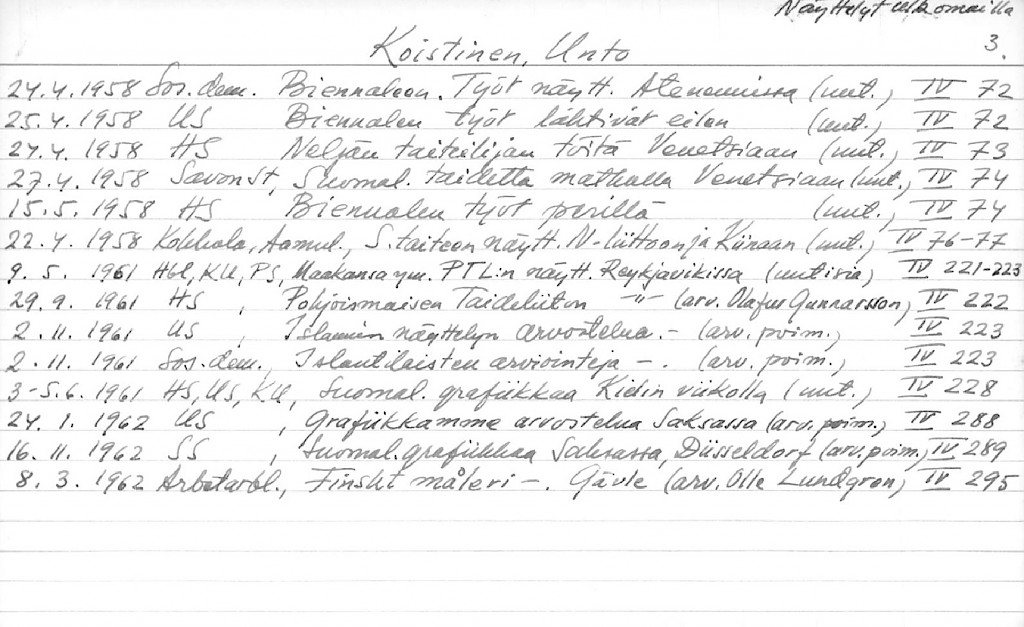 Näyttelyt ulkomailla
3.
Koistinen, Unto
24.4.1958 Sos.dem. Biennaleen. Työt näytt. Ateneumissa (uut.) IV 72
25.4.1958 US Biennalen työt lähtivät eilen (uut.) IV 72
24.4.1958 HS Neljän taiteilijan töitä Venetsiaan (uut.) IV 73
27.4.1958 SavonSt, Suomal. taidetta matkalla Venetsiaan (uut.) IV 74
15.5.1958 HS Biennalen työt perillä (uut.) IV 74
22.4.1958 Kokkola, Aamul., S.taiteen näytt. N-liittoon ja Kiinaan (uut.) IV 76-77
9.5.1961 Hbl, KU, PS, Maakansa ym. PTL:n näytt. Reykjavikissa (uutisia) IV 221-223
29.9.1961 HS, Pohjoismaisen Taideliiton -"- (arv. Olafur Gunnarsson) IV 222
2.11.1961 US, Islannin näyttelyn arvostelua.- (arv. poim.) IV 223
2.11.1961 Sos.dem., Islantilaisten arviointeja -. (arv. poim.) IV 223
3-5.6.1961 HS, US, KU, Suomal. grafiikkaa Kielin viikolla (uut.) IV 228
24.1.1962 US, Grafiikkamme arvostelua Saksassa (arv. poim.) IV 288
16.11.1962 SS, Suomal. grafiikkaa Saksassa, Düsseldorf (arv. poim.) IV 289
8.3.1962 Arbetarbl., Finskt måleri -. Gävle (arv. Olle Lundgren) IV 295